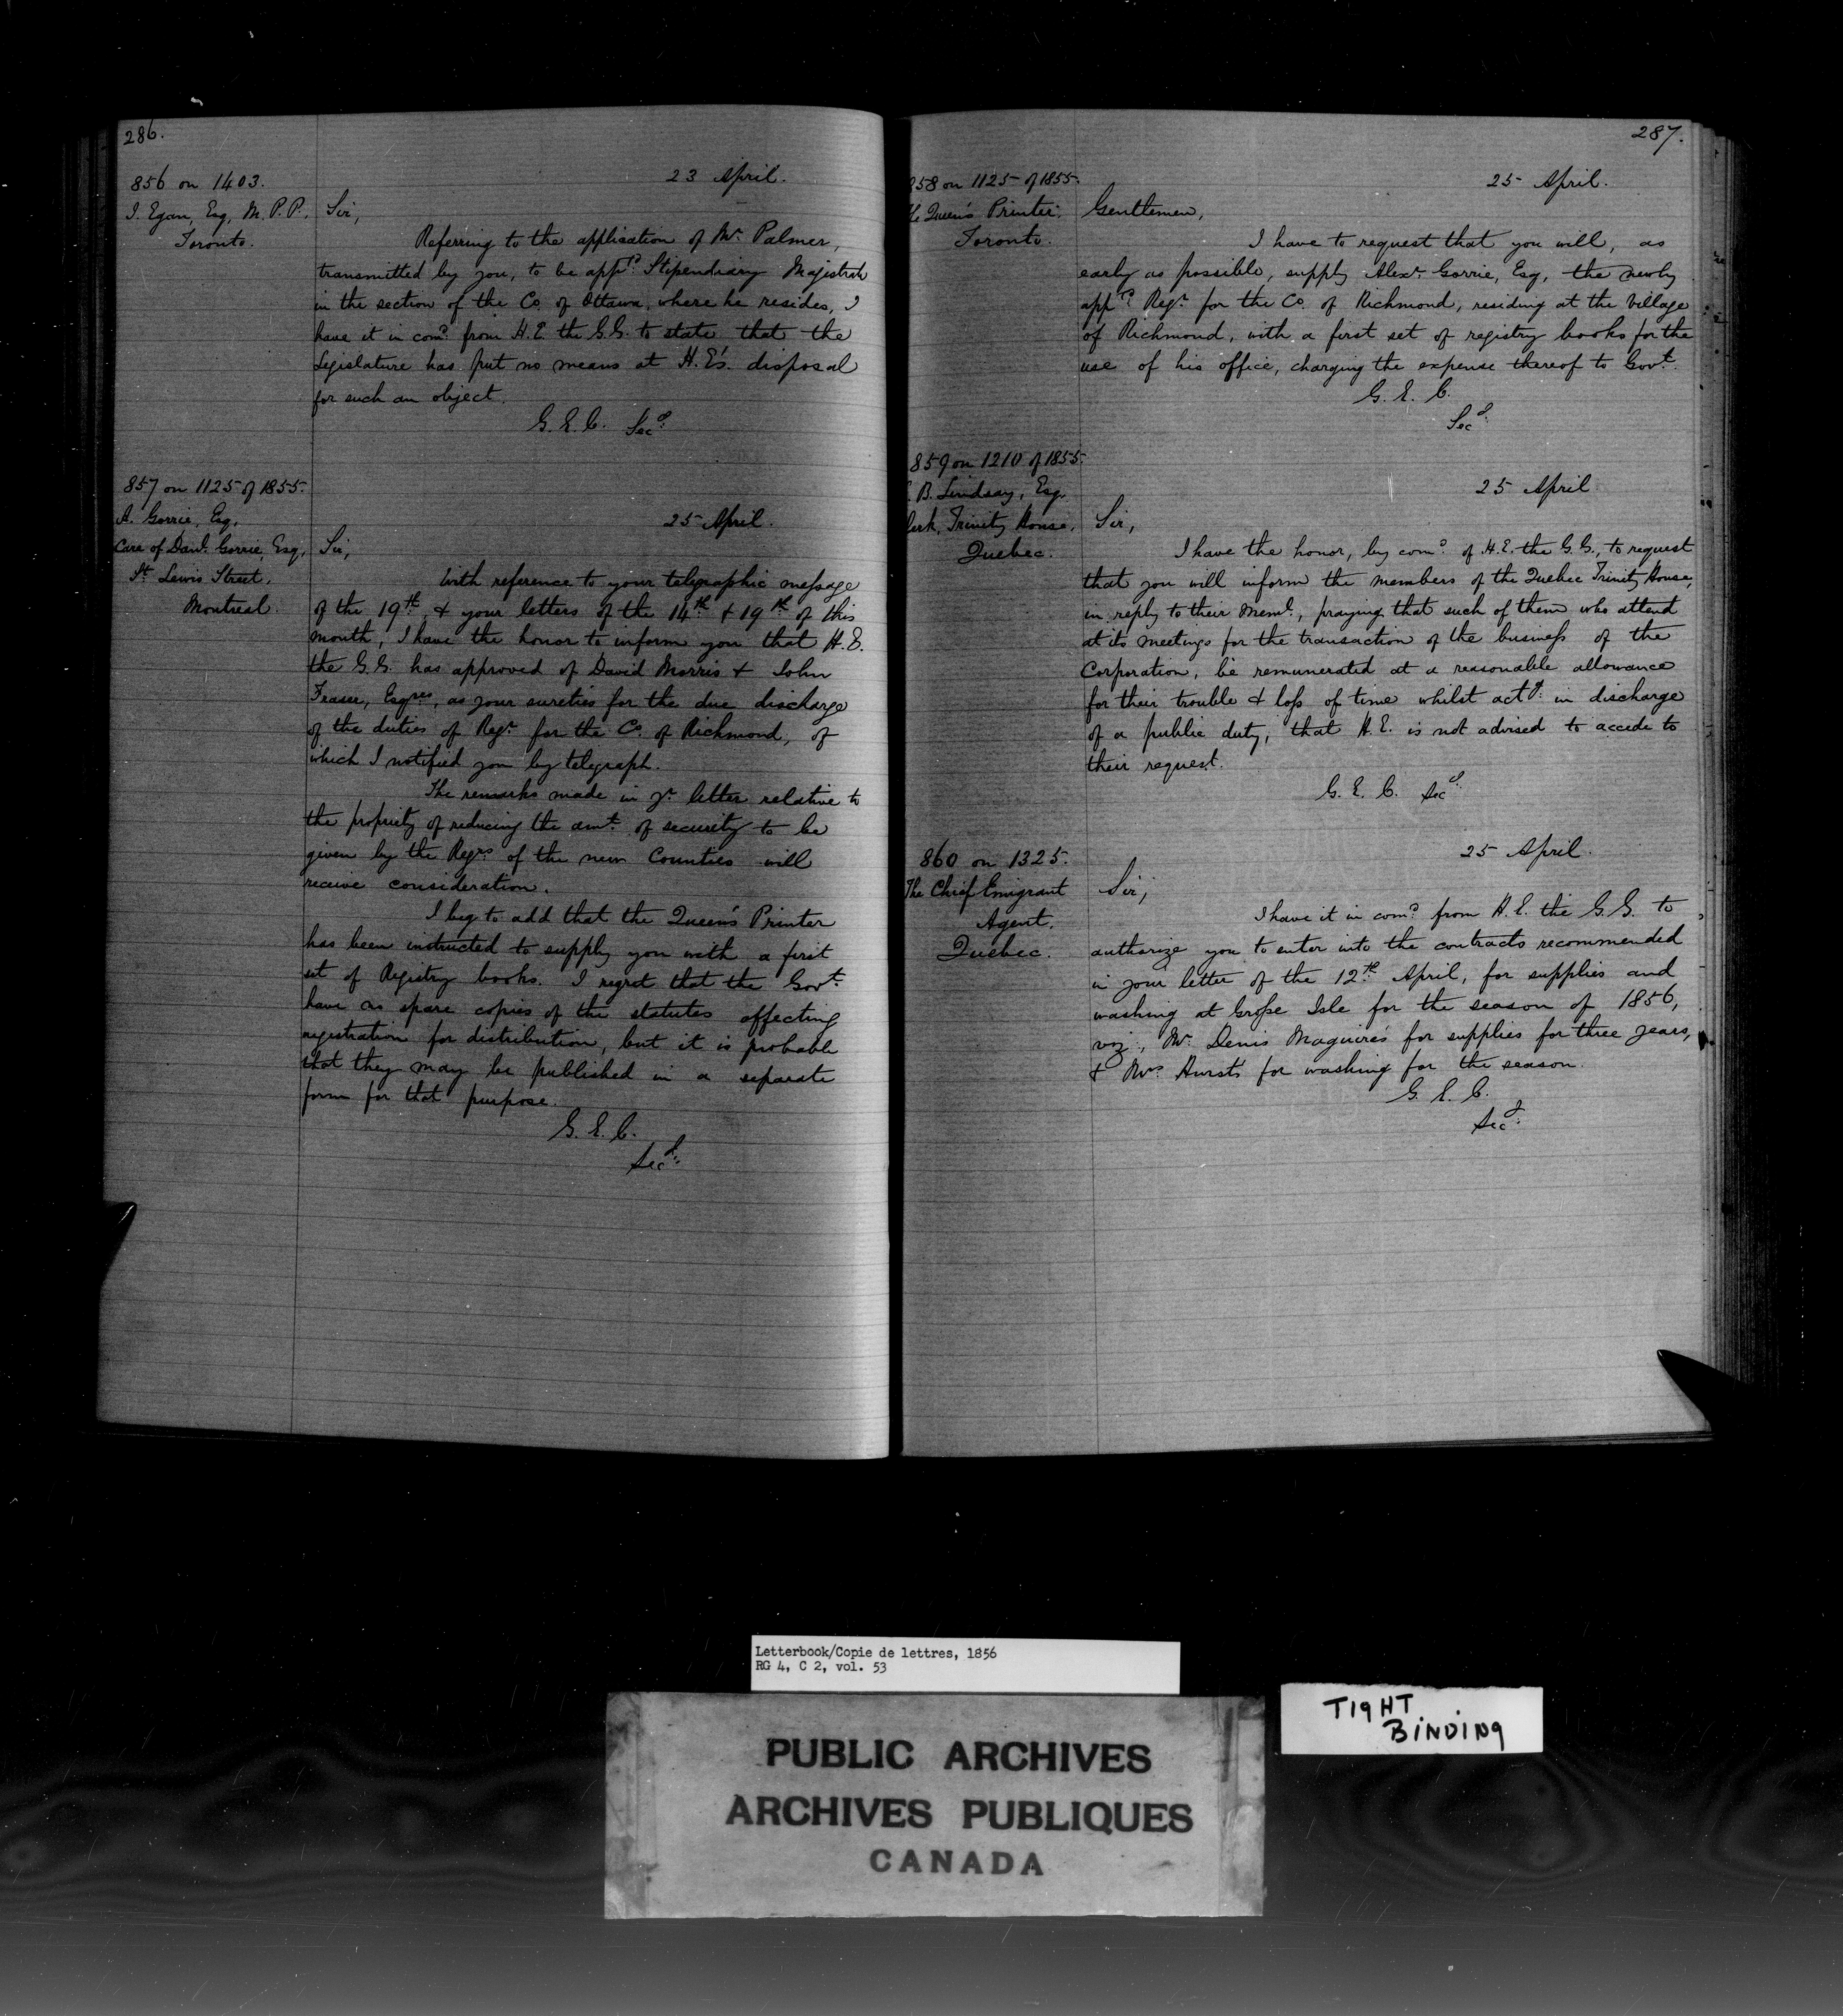 286.
856 on 1403.
J. Egan, Esq, M.P.P.,
Toronto.
23 April.
Sir,
Referring to the application of Mr. Palmer,
transmitted by you, to be appd. Stipendiary Magistrate
in the section of the Co. of Ottawa, where he resides, I
have it in comd. from H.E. the G.G. to state that the
Legislature has put no means at H.E's. disposal
for such an object.
G.E.C. Secy.
857 on 1125 of 1855.
A. Gorrie, Esq,
Care of Danl. Gorrie, Esq,
St. Lewis Street,
Montreal.
25 April.
Sir,
With reference to your telegraphic message
of the 19th. & your letters of the 14th. & 19th. of this
month, I have the honor to inform you that H.E.
the G.G. has approved of David Morris & John
Fraser, Esqres, as your sureties for the due discharge
of the duties of Regr. for the Co. of Richmond, of
which I notified you by telegraph.
The remarks made in yr. letter relative to
the propriety of reducing the amt. of security to be
given by the Regrs. of the new Counties will
receive consideration.
I beg to add that the Queen's Printer
has been instructed to supply you with a first
set of Registry books. I regret that the Govt.
have no spare copies of the statutes affecting
registration for distribution, but it is probable
that they may be published in a separate
form for that purpose.
G.E.C.
Secy.
287.
858 on 1125 of 1855.
The Queen's Printer.
Toronto.
25 April.
Gentlemen,
I have to request that you will, as
early as possible, supply Alexr. Gorrie, Esq, the newly
appd. Regr. for the Co. of Richmond, residing at the village
of Richmond, with a first set of registry books for the
use of his office, charging the expense thereof to Govt.
G.E.C.
Secy.
859 on 1210 of 1855.
B. Lindsay, Esq.
Clerk, Trinity House,
Quebec.
25 April.
Sir,
I have the honor, by comd. of H.E. the G.G., to request
that you will inform the members of the Quebec Trinity House,
in reply to their meml., praying that such of them who attend
at its meetings for the transaction of the business of the
Corporation, be remunerated at a reasonable allowance
for their trouble & loss of time whilst actg. in discharge
of a public duty, that H.E. is not advised to accede to
their request.
G.E.C. Secy.
860 on 1325.
The Chief Emigrant
Agent.
Quebec.
25 April.
Sir,
I have it in comd. from H.E. the G.G. to
authorize you to enter into the contracts recommended
in your letter of the 12th. April, for supplies and
washing at Grosse Isle for the season of 1856,
viz., Mr. Denis Maguire's for supplies for three years,
& Mrs. Hursts for washing for the season.
G.E.C.
Secy.
Letterbook/Copie de lettres, 1856
RG 4, C 2, vol. 53
TIGHT
BINDING
PUBLIC ARCHIVES
ARCHIVES PUBLIQUES
CANADA